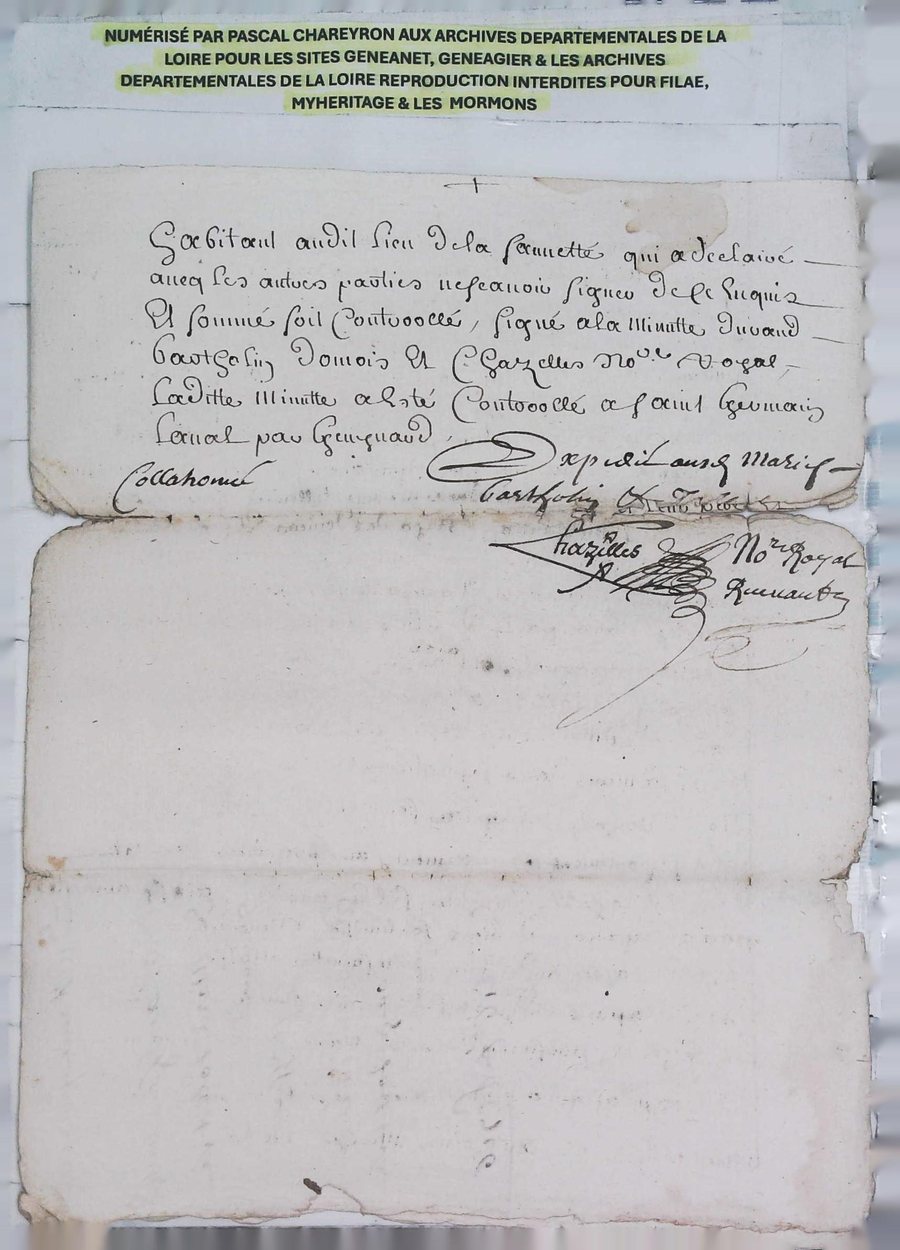 NUMÉRISÉ PAR PASCAL CHAREYRON AUX ARCHIVES DEPARTEMENTALES DE LA
LOIRE POUR LES SITES GENEANET, GENEAGIER & LES ARCHIVES
DEPARTEMENTALES DE LA LOIRE REPRODUCTION INTERDITES POUR FILAE,
MYHERITAGE & LES MORMONS
habitant audit lieu de la qui a declairé
aueq les autres parties nescauoir signer de ce Enquis
Et sommé soit Controollé, signé a la Minutte durand
bartholin domois Et Chazelles No.re Royal,
Laditte Minutte a Esté Controollé a saint Germain
Laual par
Expedié ausd Maries
Collationné
bartholin &
Chazelles No.re Royal